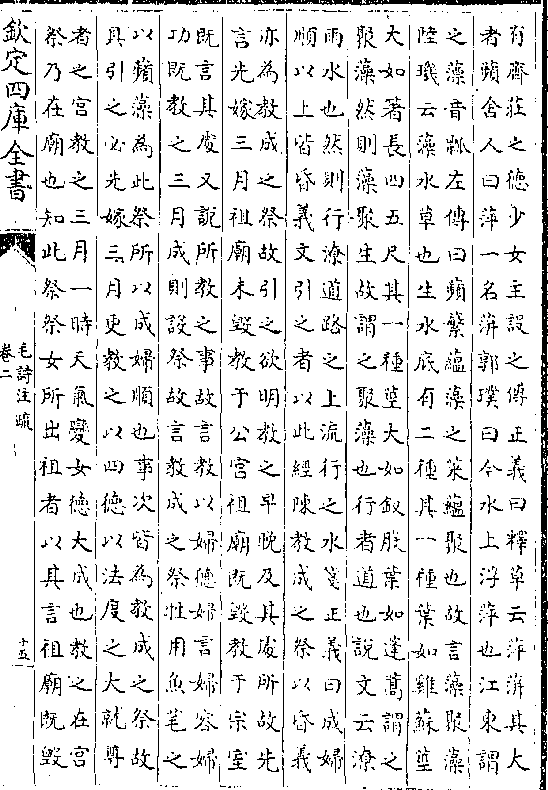 有齊莊之德少女主設之傳正義曰釋草云萍蓱其大
者蘋舍人曰萍一名蓱郭璞曰今水上浮萍也江東謂
之藻音瓢左傳曰蘋蘩蘊藻之菜蘊聚也故言藻聚藻
陸璣云藻水草也生水底有二種其一種葉如雞蘇莖
大如著長四五尺其一種莖大如釵股葉如蓬蒿謂之
聚藻然則藻聚生故謂之聚藻也行者道也說文云潦
雨水也然則行潦道路之上流行之水箋正義曰成婦
順以上皆昏義文引之者以此經陳教成之祭以昏義
亦為教成之祭故引之欲明教之早晚及其處所故先
言先嫁三月祖廟未毀教于公宮祖廟既毀教于宗室
既言其處又說所教之事故言教以婦德婦言婦容婦
功既教之三月成則設祭故言教成之祭牲用魚芼之
以蘋藻為此祭所以成婦順也事次皆為教成之祭故
具引之必先嫁三月更教之以四德以法度之大就尊
者之宮教之三月一時天氣變女德大成也教之在宮
祭乃在廟也知此祭祭女所出祖者以其言祖廟既毀
欽定四庫全書
毛詩注疏
卷二
十五